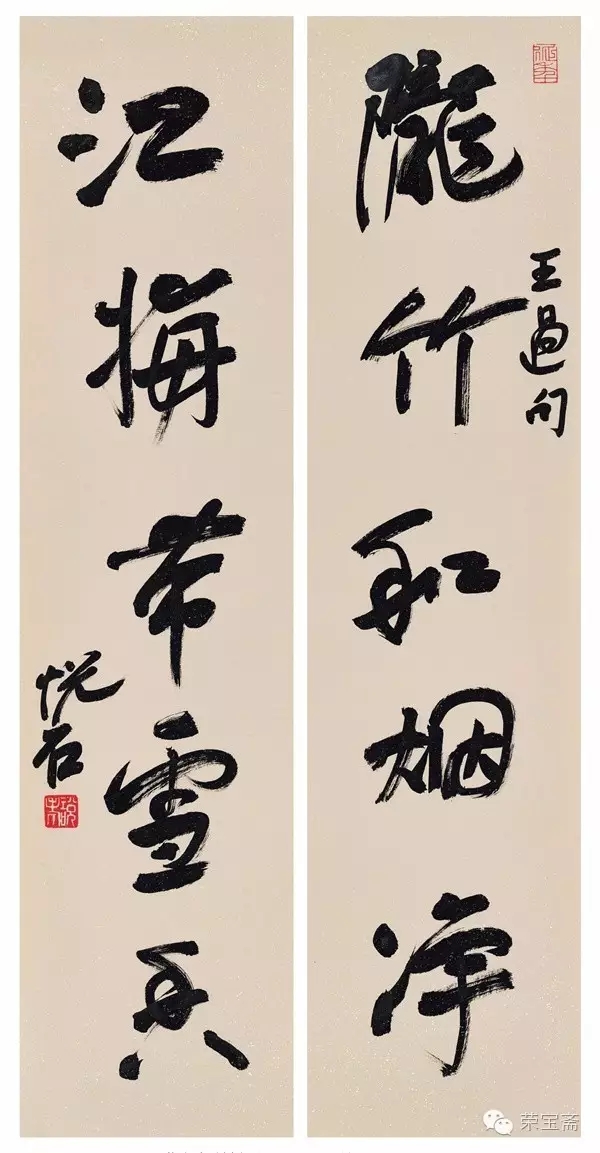 隴竹和烟净
王過句
江梅带雪香
悦石
荣宝斋